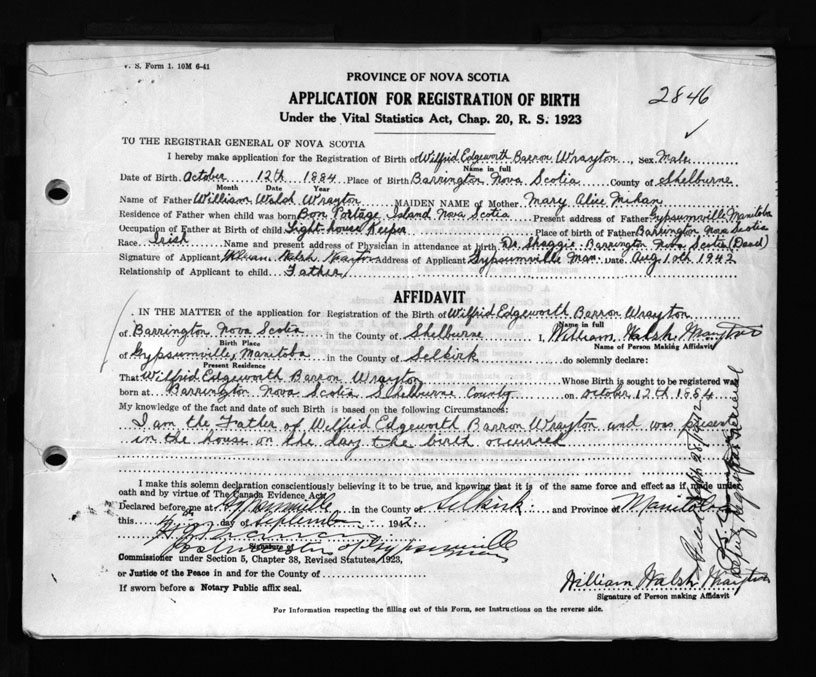 V. S. Form 1. 10M 6-41
PROVINCE OF NOVA SCOTIA
APPLICATION FOR REGISTRATION OF BIRTH
2846
Under the Vital Statistics Act, Chap. 20, R. S. 1923
TO THE REGISTRAR GENERAL OF NOVA SCOTIA
I hereby make application for the Registration of Birth of Wilfrid Edgeworth Barron Wrayton, Sex Male
Name in full
Date of Birth October 12th 1884 Place of Birth Barrington Nova Scotia County of Shelburne
Month Date Year
Name of Father William Walsh Wrayton MAIDEN NAME of Mother Mary Alice Mehan
Residence of Father when child was born Bon Portage Island Nova Scotia Present address of Father Gypsumville Manitoba
Occupation of Father at Birth of child Light-house Keeper Place of birth of Father Barrington Nova Scotia
Race Irish Name and present address of Physician in attendance at birth Dr. Barrington Nova Scotia (Dead)
Signature of Applicant William Walsh Wrayton Address of Applicant Gypsumville Man. Date Aug 10th 1942
Relationship of Applicant to child Father
AFFIDAVIT
IN THE MATTER of the application for Registration of the Birth of Wilfrid Edgeworth Barron Wrayton
Name in full
of Barrington Nova Scotia in the County of Shelburne I, William Walsh Wrayton
Birth Place Name of Person Making Affidavit
of Gypsumville, Manitoba in the County of Selkirk do solemnly declare:
Present Residence
That Wilfrid Edgeworth Barron Wrayton Whose Birth is sought to be registered was
born at Barrington Nova Scotia Schelburne County on october 12th 1884
My knowledge of the fact and date of such Birth is based on the following Circumstances:
I am the Father of Wilfrid Edgeworth Barron Wrayton and was present
in the house on the day the birth occurred
I make this solemn declaration conscientiously believing it to be true, and knowing that it is of the same force and effect as if made under
oath and by virtue of The Canada Evidence Act
Declared before me at Gypsumville in the County of Selkirk and Province of Manitoba
this day of September 1942
Signature of
Commissioner under Section 5, Chapter 38, Revised Statutes, 1923,
or Justice of the Peace in and for the County of
If sworn before a Notary Public affix seal.
William Walsh Wrayton
Signature of Person making Affidavit
For Information respecting the filling out of this Form, see Instructions on the reverse side.
Filed Sept 28/1942
Deputy Registrar General